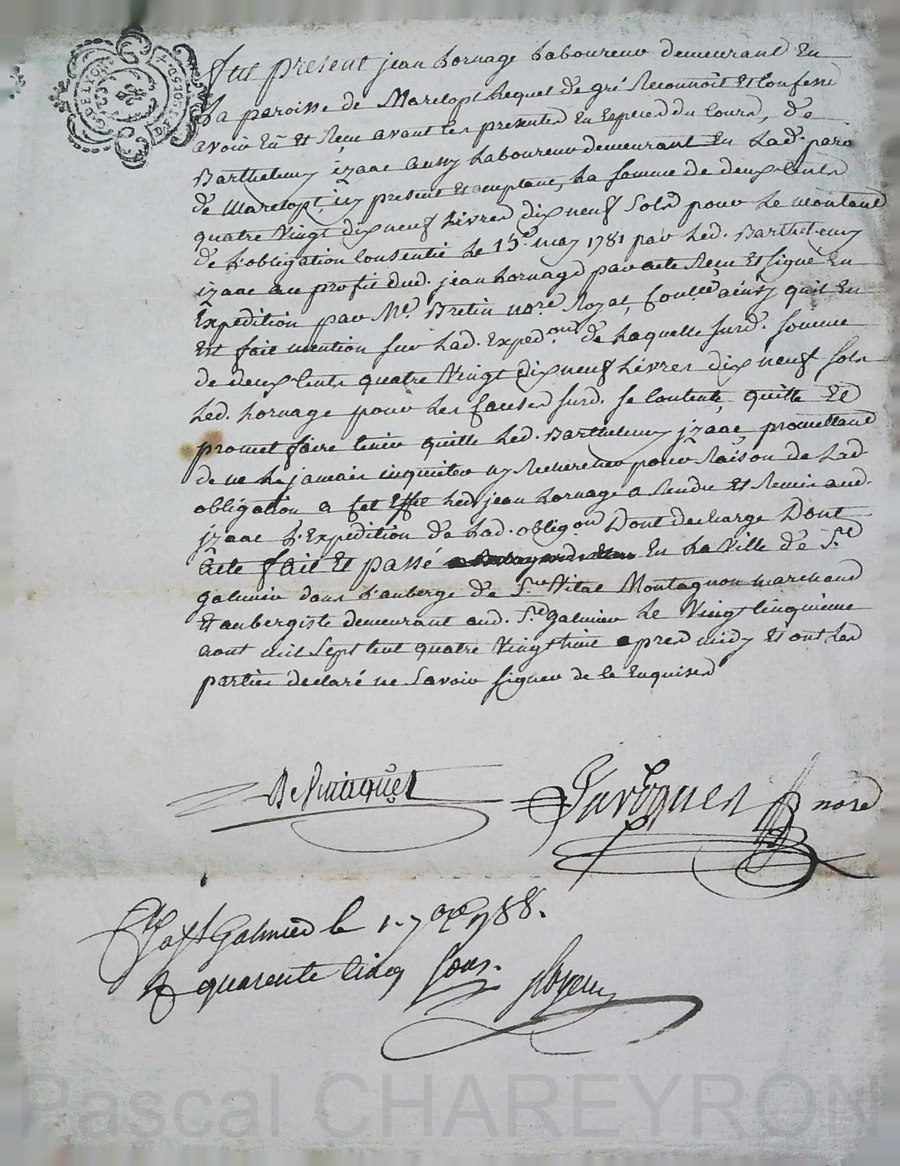 Fut present jean hornage Laboureur demeurant En
La paroisse de Marelopt Lequel de gré Reconnoit Et Confesse
avoir Eû et Reçu avant les presentes En Especes du Cours, de
Barthelemy izaac aussy Laboureur demeurant En Lad. paro
de Marelopt, icy present Et acceptant, La somme de deux Cents
quatre Vingt dix neuf Livres dix neuf Sols pour le montant
de L'obligation Consentie Le 15e. may 1781 par Led. Barthelemy
izaac au profit dud. jean hornage par acte Reçu Et signé En
Expedition par Me. Bretin nore. Royal, Conllé ainsy quil En
Est fait mention sur Lad. Expedon. de Laquelle susd. somme
de deux Cents quatre Vingt dix neuf Livres dix neuf sols
Led. hornage pour les Causes susd. se Contente, quitte Et
promet faire tenir quitte Led. Barthelemy jzaac promettant
de ne le jamais inquieter ny Rechercher pour Raison de Lad
obligation a Cet Effet Led. jean hornage a Rendu Et Remis aud.
jzaac L'Expedition de Lad. obligon Dont decharge Dont
acte fait Et passé En La Ville de St
galmier dans L'auberge de Sr. Vital Montagnon marchand
Et aubergiste demeurant aud. St galmier Le Vingt Cinquieme
aout mil Sept Cent quatre Vingt huit apres midy Et ont Les
parties declaré ne Savoir signer de ce Enquises
nore
St Galmier le 1. 7bre 1788.
R quarente Cinq Sous.
Pascal CHAREYRON